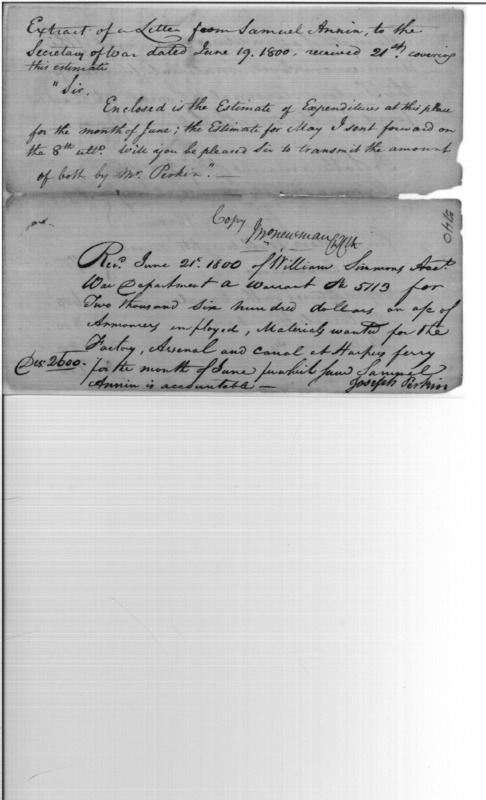 Extract of a Letter from Samuel Annin, to the
Secretary of War dated June 19. 1800, received 21st. covering
this estimate
"Sir.
Enclosed is the Estimate of Expenditures at this place
for the month of June; the Estimate for May I sent forward on
the 8th ulto. will you be pleased Sir to transmit the amount
of both by Mr. Perkin". —
Copy
Jno Newman
3740
Recd. June 21st. 1800 of William Simmons Acct.
War Department a Warrant No 5113 for
Two thousand Six hundred dollars on a/c of
Armourers employed, Materials wanted for the
Factory, Arsenal and canal at Harpers ferry
Drs. 2600. for the month of June for which sum Samuel
Annin is accountable — Joseph Perkin